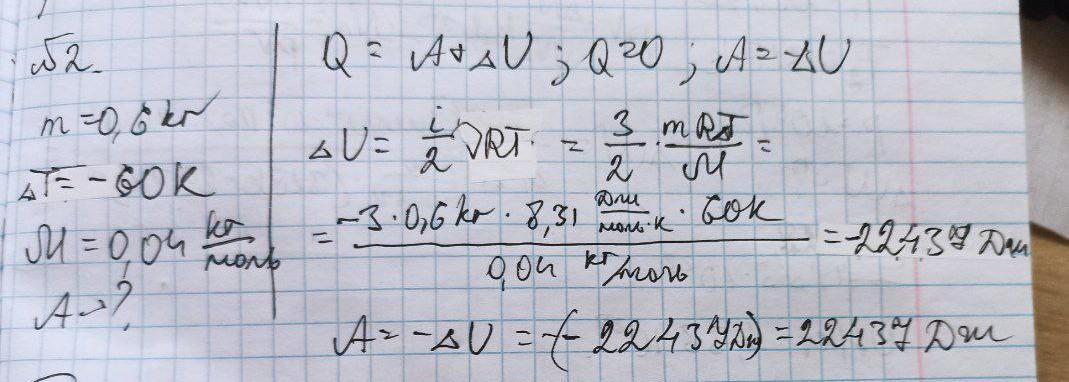 №2.
m = 0,6 кг
ΔT = -60K
M = 0,04 кг/моль
A - ?
Q = A + ΔU ; Q = 0 ; A = -ΔU
ΔU = i/2 νRT = 3/2 · mRT/M =
= -3 · 0,6 кг · 8,31 Дж/моль·К · 60К / 0,04 кг/моль = -22437 Дж
A = -ΔU = -(-22437 Дж) = 22437 Дж